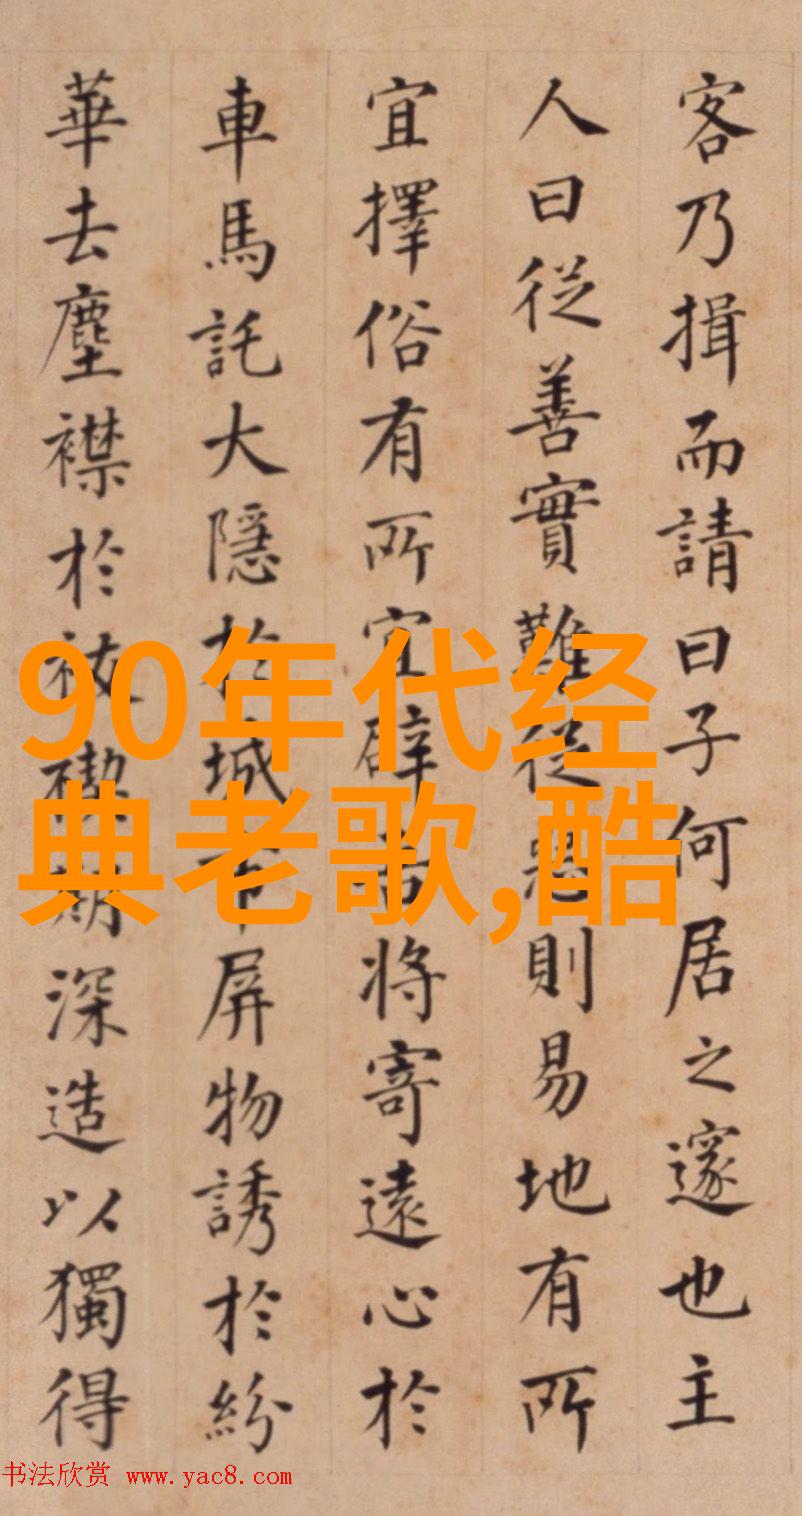 客乃揖而請曰子何居之邃也主
人曰從善實難從惡則易地有所
宜擇俗有所宜辟吾將寄遠心於
車馬託大隱於城市屏物誘於紛
華去塵襟於祓禊期深造以獨得
90年代经
典老歌,酷
书法欣赏 www.yac8.com